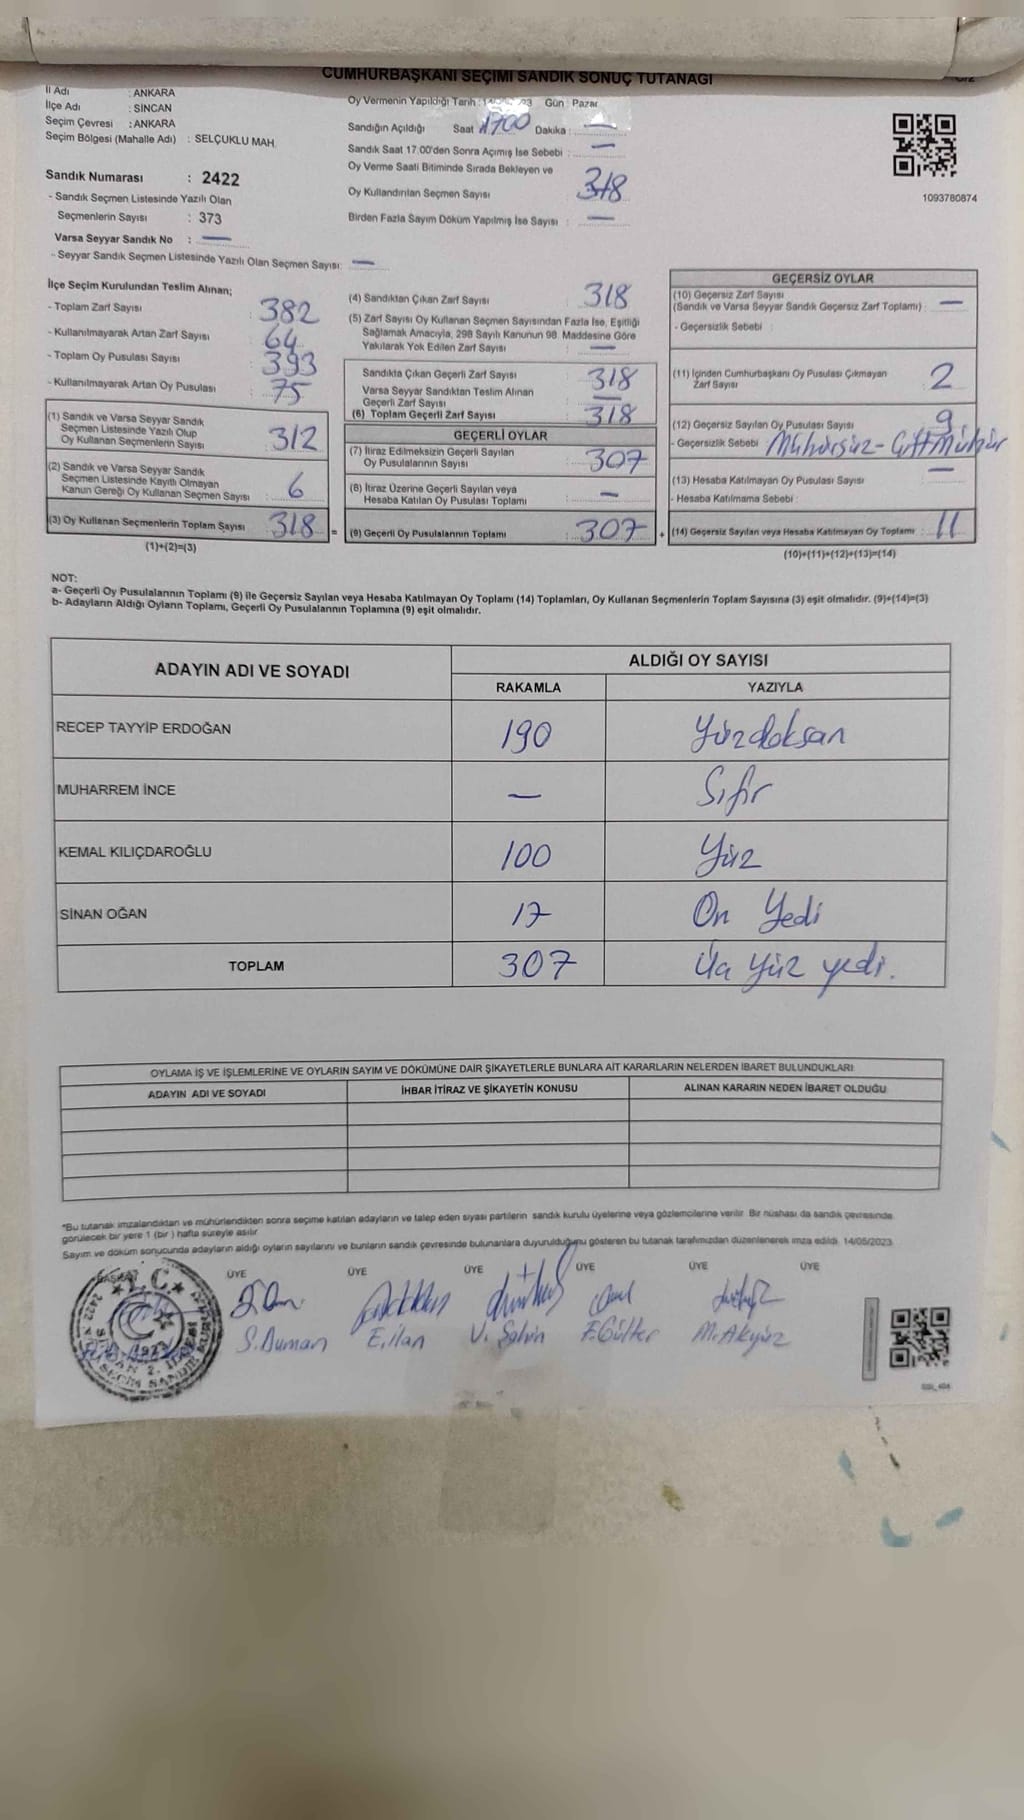 CUMHURBAŞKANI SEÇİMİ SANDIK SONUÇ TUTANAĞI
İl Adı : ANKARA
İlçe Adı : SİNCAN
Seçim Çevresi : ANKARA
Seçim Bölgesi (Mahalle Adı) : SELÇUKLU MAH.
Sandık Numarası : 2422
- Sandık Seçmen Listesinde Yazılı Olan
Seçmenlerin Sayısı : 373
Varsa Seyyar Sandık No : —
- Seyyar Sandık Seçmen Listesinde Yazılı Olan Seçmen Sayısı: —
Oy Vermenin Yapıldığı Tarih : Gün : Pazar
Sandığın Açıldığı Saat 1700 Dakika : —
Sandık Saat 17:00'den Sonra Açımış İse Sebebi : —
Oy Verme Saati Bitiminde Sırada Bekleyen ve
Oy Kullandırılan Seçmen Sayısı 318
Birden Fazla Sayım Döküm Yapılmış İse Sayısı : —
1093780874
İlçe Seçim Kurulundan Teslim Alınan;
- Toplam Zarf Sayısı 382
- Kullanılmayarak Artan Zarf Sayısı 64
- Toplam Oy Pusulası Sayısı 393
- Kullanılmayarak Artan Oy Pusulası 75
(1) Sandık ve Varsa Seyyar Sandık
Seçmen Listesinde Yazılı Olup
Oy Kullanan Seçmenlerin Sayısı 312
(2) Sandık ve Varsa Seyyar Sandık
Seçmen Listesinde Kayıtlı Olmayan
Kanun Gereği Oy Kullanan Seçmen Sayısı 6
(3) Oy Kullanan Seçmenlerin Toplam Sayısı 318 =
(1)+(2)=(3)
(4) Sandıktan Çıkan Zarf Sayısı 318
(5) Zarf Sayısı Oy Kullanan Seçmen Sayısından Fazla İse, Eşitliği
Sağlamak Amacıyla, 298 Sayılı Kanunun 98. Maddesine Göre
Yakılarak Yok Edilen Zarf Sayısı —
Sandıkta Çıkan Geçerli Zarf Sayısı 318
Varsa Seyyar Sandıktan Teslim Alınan
Geçerli Zarf Sayısı —
(6) Toplam Geçerli Zarf Sayısı 318
GEÇERLİ OYLAR
(7) İtiraz Edilmeksizin Geçerli Sayılan
Oy Pusulalarının Sayısı 307
(8) İtiraz Üzerine Geçerli Sayılan veya
Hesaba Katılan Oy Pusulası Toplamı —
(9) Geçerli Oy Pusulalarının Toplamı 307 +
GEÇERSİZ OYLAR
(10) Geçersiz Zarf Sayısı
(Sandık ve Varsa Seyyar Sandık Geçersiz Zarf Toplamı) : —
- Geçersizlik Sebebi :
(11) İçinden Cumhurbaşkanı Oy Pusulası Çıkmayan
Zarf Sayısı 2
(12) Geçersiz Sayılan Oy Pusulası Sayısı 9
- Geçersizlik Sebebi : Mühürsüz - Çift Mühür
(13) Hesaba Katılmayan Oy Pusulası Sayısı —
- Hesaba Katılmama Sebebi :
(14) Geçersiz Sayılan veya Hesaba Katılmayan Oy Toplamı : 11
(10)+(11)+(12)+(13)=(14)
NOT:
a- Geçerli Oy Pusulalarının Toplamı (9) ile Geçersiz Sayılan veya Hesaba Katılmayan Oy Toplamı (14) Toplamları, Oy Kullanan Seçmenlerin Toplam Sayısına (3) eşit olmalıdır. (9)+(14)=(3)
b- Adayların Aldığı Oyların Toplamı, Geçerli Oy Pusulalarının Toplamına (9) eşit olmalıdır.
ADAYIN ADI VE SOYADI ALDIĞI OY SAYISI
RAKAMLA YAZIYLA
RECEP TAYYİP ERDOĞAN 190 Yüzdoksan
MUHARREM İNCE — Sıfır
KEMAL KILIÇDAROĞLU 100 Yüz
SİNAN OĞAN 17 On Yedi
TOPLAM 307 yüz yedi.
OYLAMA İŞ VE İŞLEMLERİNE VE OYLARIN SAYIM VE DÖKÜMÜNE DAİR ŞİKAYETLERLE BUNLARA AİT KARARLARIN NELERDEN İBARET BULUNDUKLARI
ADAYIN ADI VE SOYADI İHBAR İTİRAZ VE ŞİKAYETİN KONUSU ALINAN KARARIN NEDEN İBARET OLDUĞU
*Bu tutanak imzalandıktan ve mühürlendikten sonra seçime katılan adayların ve talep eden siyasi partilerin sandık kurulu üyelerine veya gözlemcilerine verilir. Bir nüshası da sandık çevresinde
görülecek bir yere 1 (bir) hafta süreyle asılır.
Sayım ve döküm sonucunda adayların aldığı oyların sayılarını ve bunların sandık çevresinde bulunanlara duyurulduğunu gösteren bu tutanak tarafımızdan düzenlenerek imza edildi. 14/05/2023
BAŞKAN ÜYE ÜYE ÜYE ÜYE ÜYE ÜYE
S.Duman E.ilan V. Şahin F.Gülter M.Akyüz
T.C.